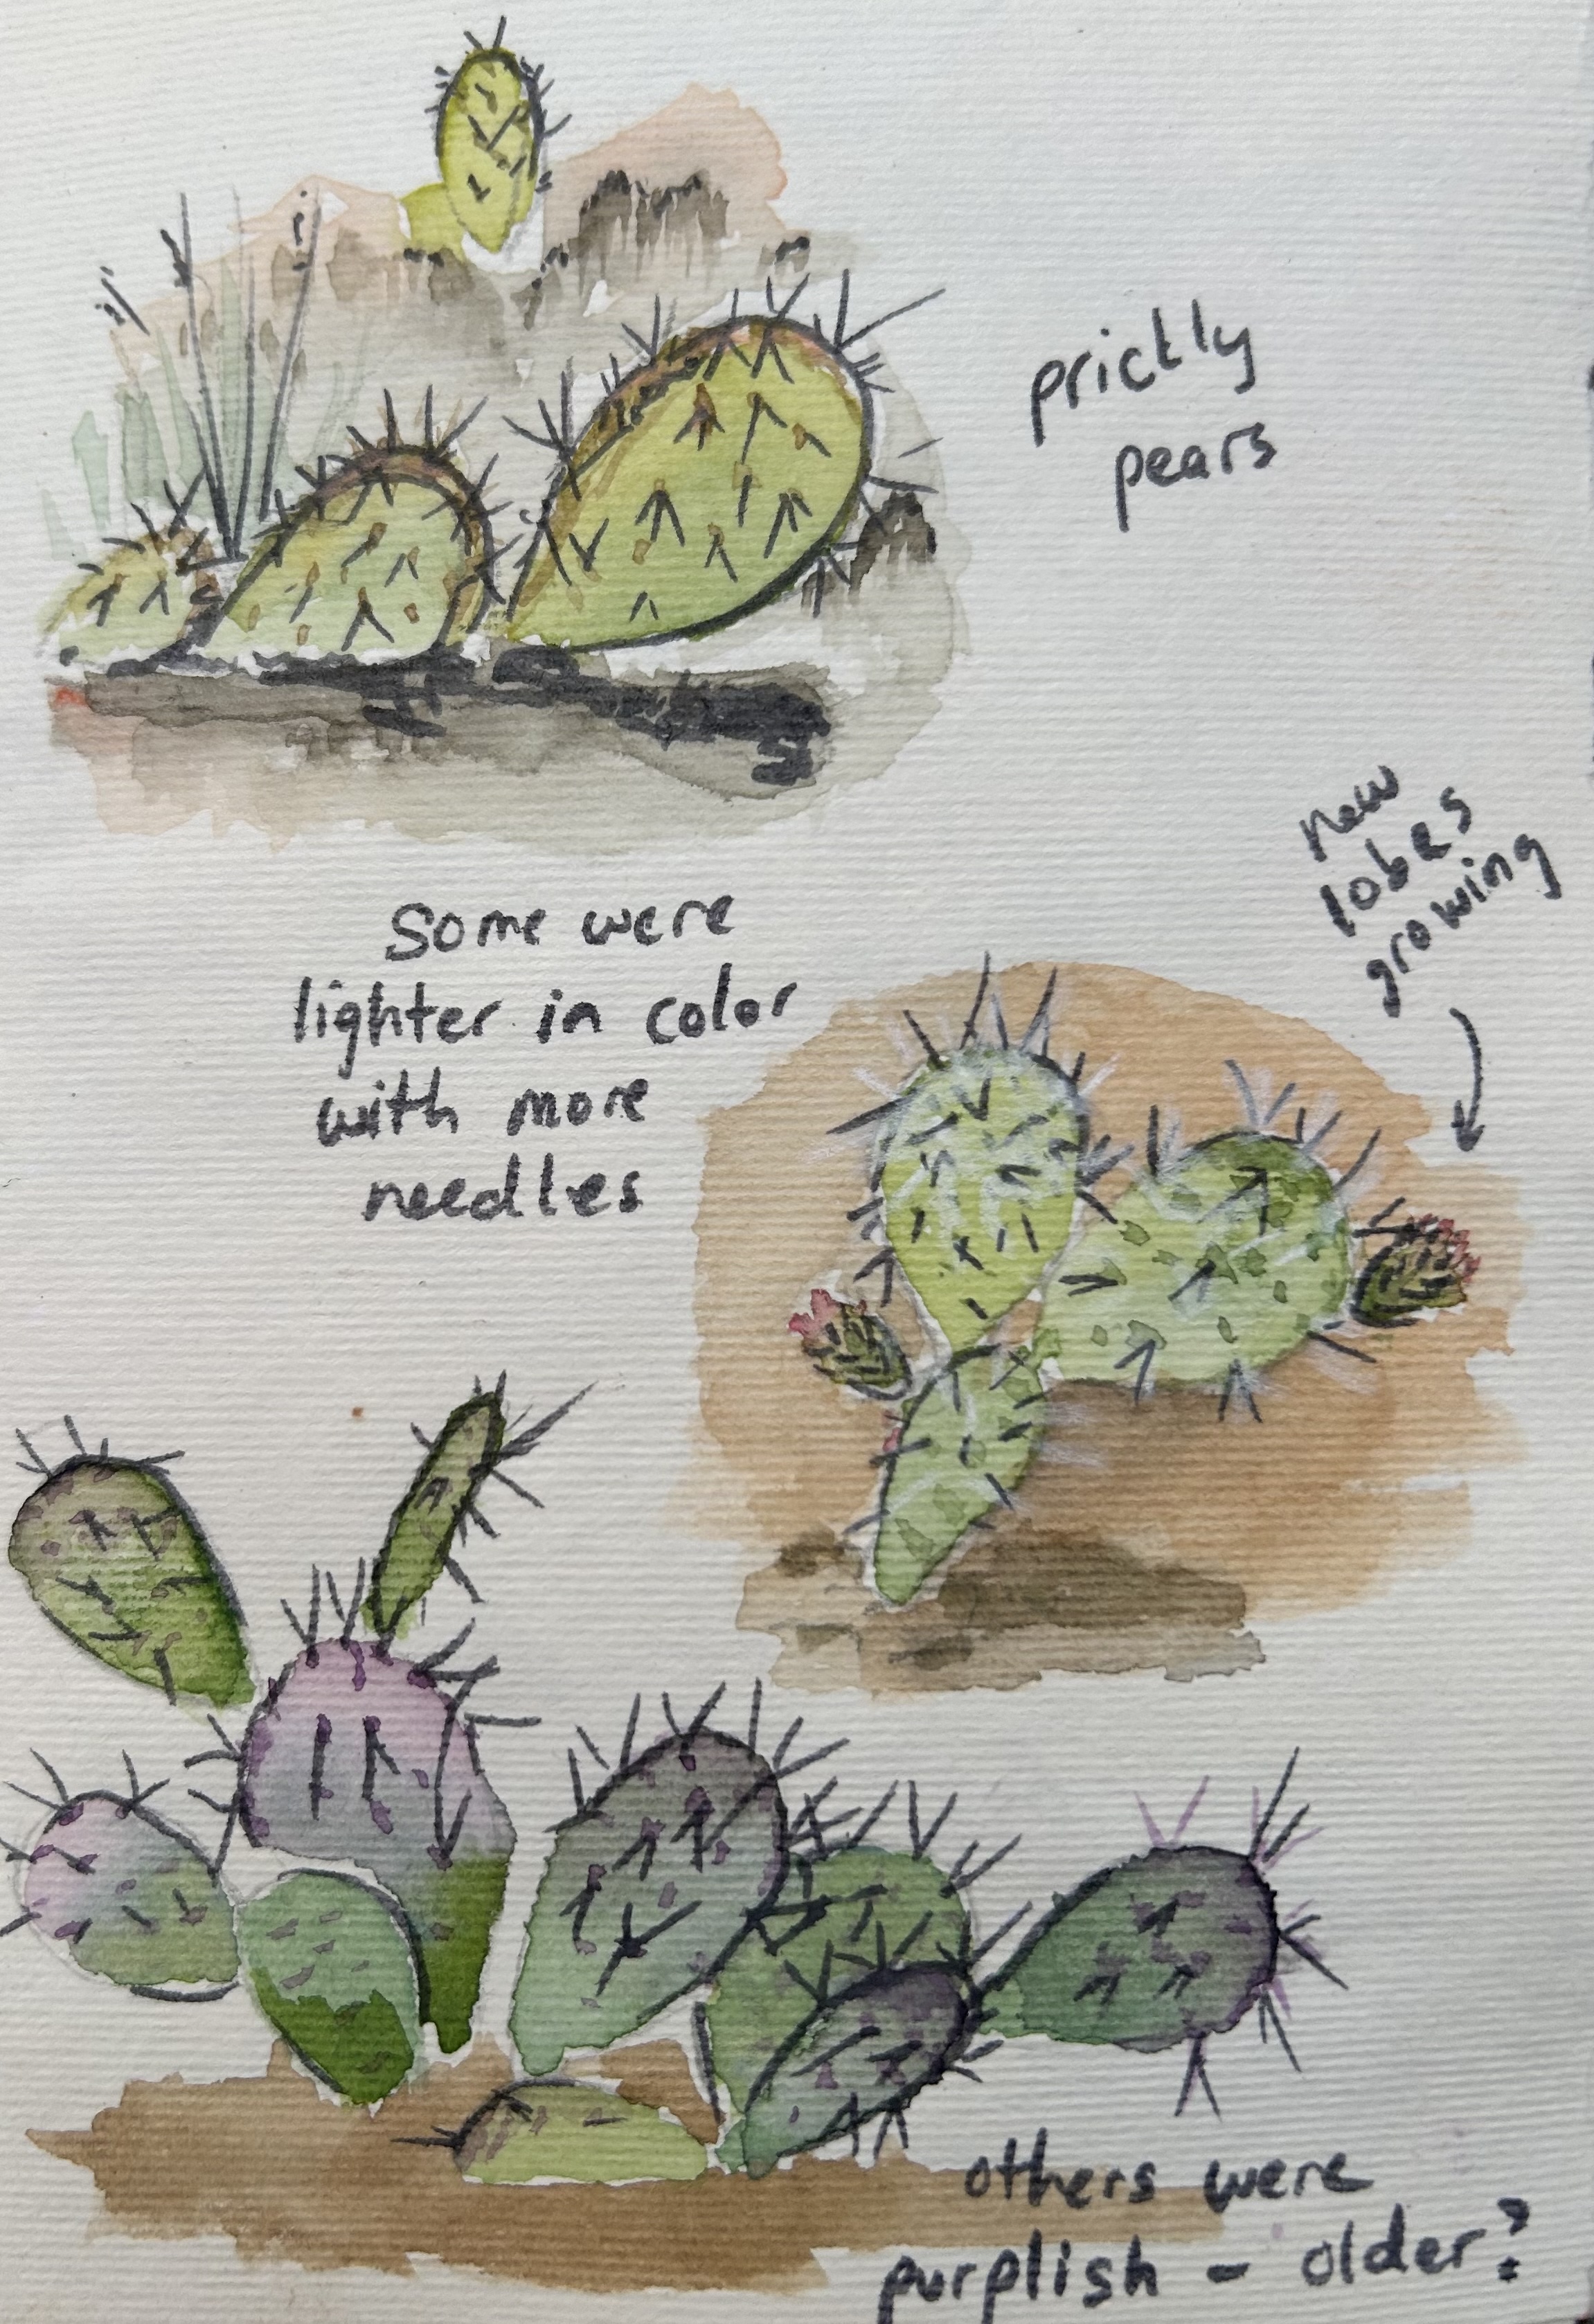 prickly
pears
new
lobes
growing
Some were
lighter in color
with more
needles
others were
purplish - older?